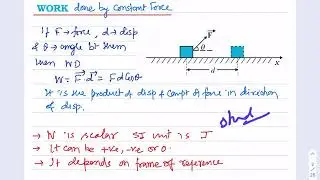 WORK done by Constant Force
If F→force, d→disp
& θ→angle bt them
then WD
W = F⃗·d⃗ = Fd Cosθ
It is the product of disp & Compt of force in direction
of disp.
F
θ
d
x
→ W is scalar SI unit is J
→ It can be +ve, -ve or 0.
→ It depends on frame of reference